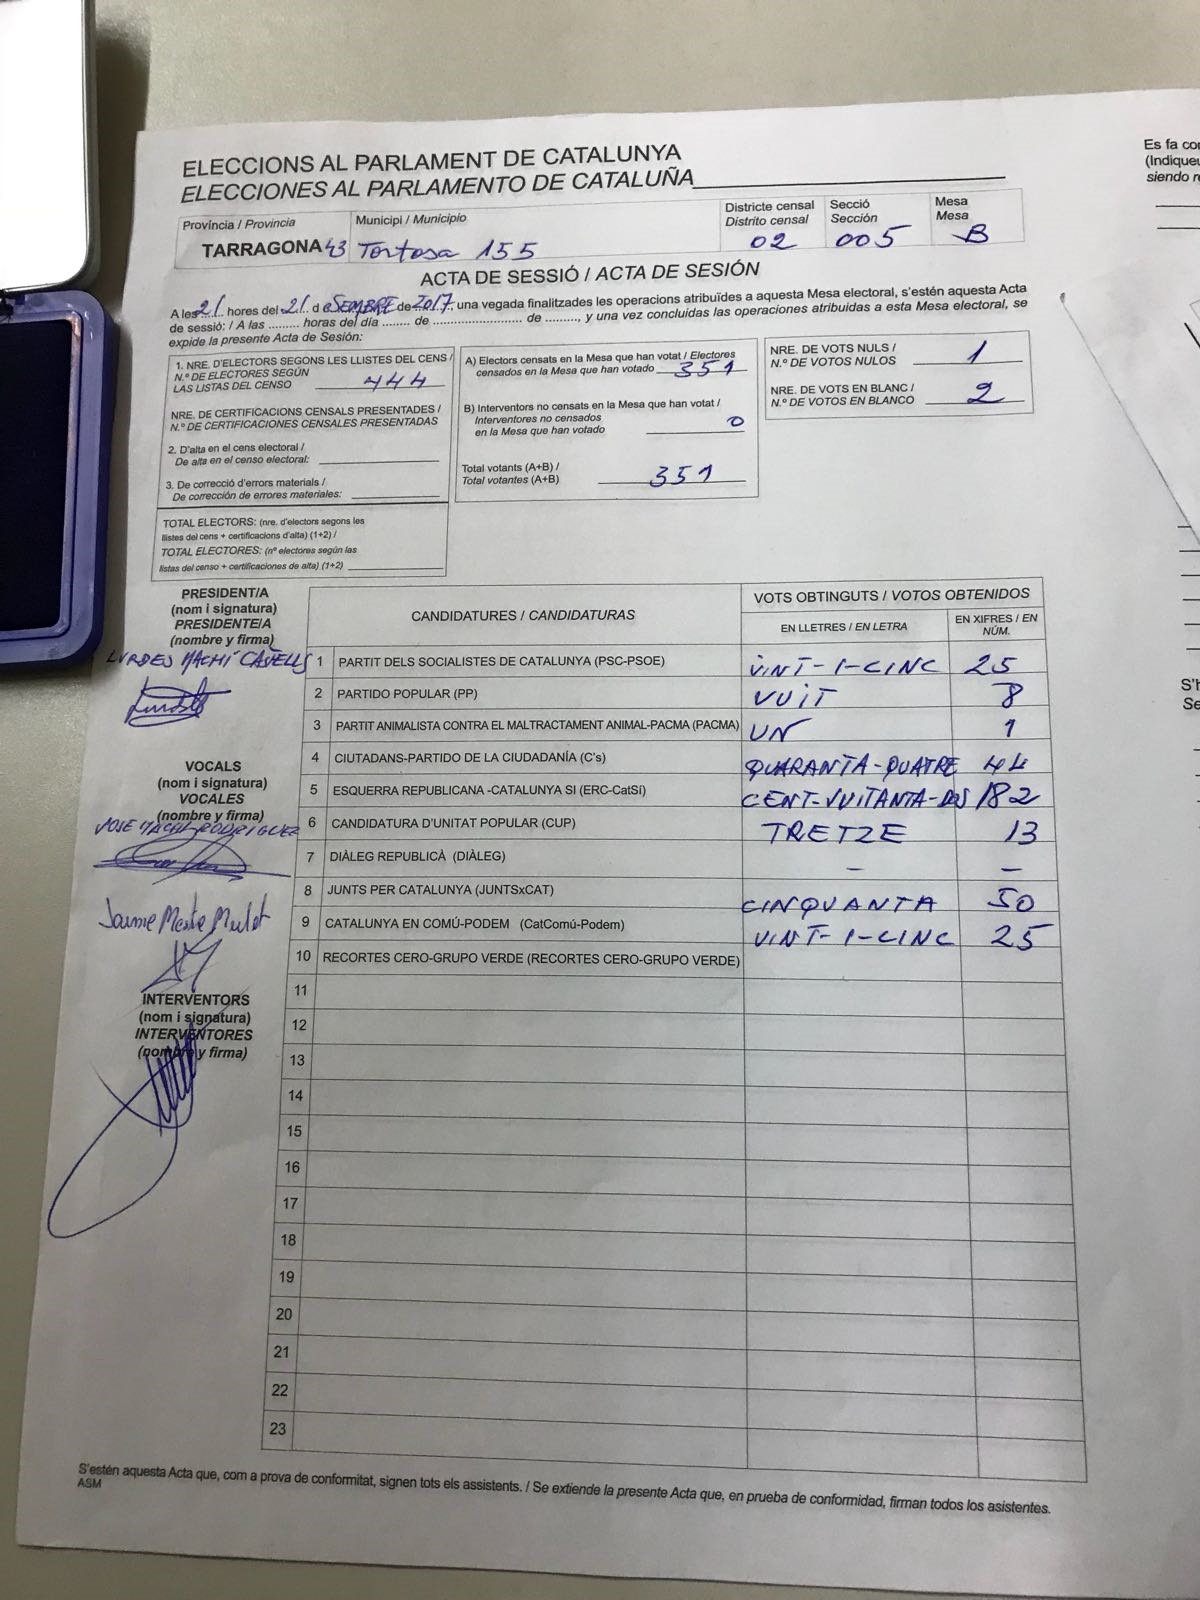 ELECCIONS AL PARLAMENT DE CATALUNYA
ELECCIONES AL PARLAMENTO DE CATALUÑA
Província / Provincia
TARRAGONA 43
Municipi / Municipio
Tortosa 155
Districte censal
Distrito censal
02
Secció
Sección
005
Mesa
Mesa
B
ACTA DE SESSIÓ / ACTA DE SESIÓN
A les 21 hores del 21 d de 2017, una vegada finalitzades les operacions atribuïdes a aquesta Mesa electoral, s'estén aquesta Acta
de sessió: / A las ......... horas del día ........ de ......................... de ........., y una vez concluidas las operaciones atribuidas a esta Mesa electoral, se
expide la presente Acta de Sesión:
1. NRE. D'ELECTORS SEGONS LES LLISTES DEL CENS /
N.º DE ELECTORES SEGÚN
LAS LISTAS DEL CENSO 444
NRE. DE CERTIFICACIONS CENSALS PRESENTADES /
N.º DE CERTIFICACIONES CENSALES PRESENTADAS
2. D'alta en el cens electoral /
De alta en el censo electoral:
3. De correcció d'errors materials /
De corrección de errores materiales:
TOTAL ELECTORS: (nre. d'electors segons les
llistes del cens + certificacions d'alta) (1+2) /
TOTAL ELECTORES: (nº electores según las
listas del censo + certificaciones de alta) (1+2)
A) Electors censats en la Mesa que han votat / Electores
censados en la Mesa que han votado 351
B) Interventors no censats en la Mesa que han votat /
Interventores no censados
en la Mesa que han votado 0
Total votants (A+B) /
Total votantes (A+B) 351
NRE. DE VOTS NULS /
N.º DE VOTOS NULOS 1
NRE. DE VOTS EN BLANC /
N.º DE VOTOS EN BLANCO 2
PRESIDENT/A
(nom i signatura)
PRESIDENTE/A
(nombre y firma)
LURDES MACHÍ CAÑELLS
VOCALS
(nom i signatura)
VOCALES
(nombre y firma)
JOSE RODRIGUEZ
Jaume
INTERVENTORS
(nom i signatura)
INTERVENTORES
(nombre y firma)
CANDIDATURES / CANDIDATURAS
VOTS OBTINGUTS / VOTOS OBTENIDOS
EN LLETRES / EN LETRA
EN XIFRES / EN
NÚM.
1 PARTIT DELS SOCIALISTES DE CATALUNYA (PSC-PSOE) VINT-I-CINC 25
2 PARTIDO POPULAR (PP) VUIT 8
3 PARTIT ANIMALISTA CONTRA EL MALTRACTAMENT ANIMAL-PACMA (PACMA) UN 1
4 CIUTADANS-PARTIDO DE LA CIUDADANÍA (C's) QUARANTA-QUATRE 44
5 ESQUERRA REPUBLICANA -CATALUNYA SI (ERC-CatSí) CENT-VUITANTA-DOS 182
6 CANDIDATURA D'UNITAT POPULAR (CUP) TRETZE 13
7 DIÀLEG REPUBLICÀ (DIÀLEG) - -
8 JUNTS PER CATALUNYA (JUNTSxCAT) CINQUANTA 50
9 CATALUNYA EN COMÚ-PODEM (CatComú-Podem) VINT-I-CINC 25
10 RECORTES CERO-GRUPO VERDE (RECORTES CERO-GRUPO VERDE)
11
12
13
14
15
16
17
18
19
20
21
22
23
S'estén aquesta Acta que, com a prova de conformitat, signen tots els assistents. / Se extiende la presente Acta que, en prueba de conformidad, firman todos los asistentes.
ASM
Es fa
(Indiqueu
siendo